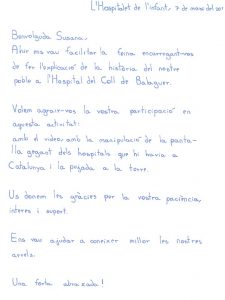 L'Hospitalet de l'Infant, 7 de març del 201
Benvolguda Susana,
Ahir ens vau facilitar la feina encarregant-vos
de fer l'explicació de la història del nostre
poble a l'Hospital del Coll de Balaguer.
Volem agrair-vos la vostra participació en
aquesta activitat:
amb el video, amb la manipulació de la panta-
lla gegant dels hospitals que hi havia a
Catalunya i la pujada a la torre.
Us donem les gràcies per la vostra paciència,
interès i suport.
Ens vau ajudar a conèixer millor les nostres
arrels.
Una forta abraçada!